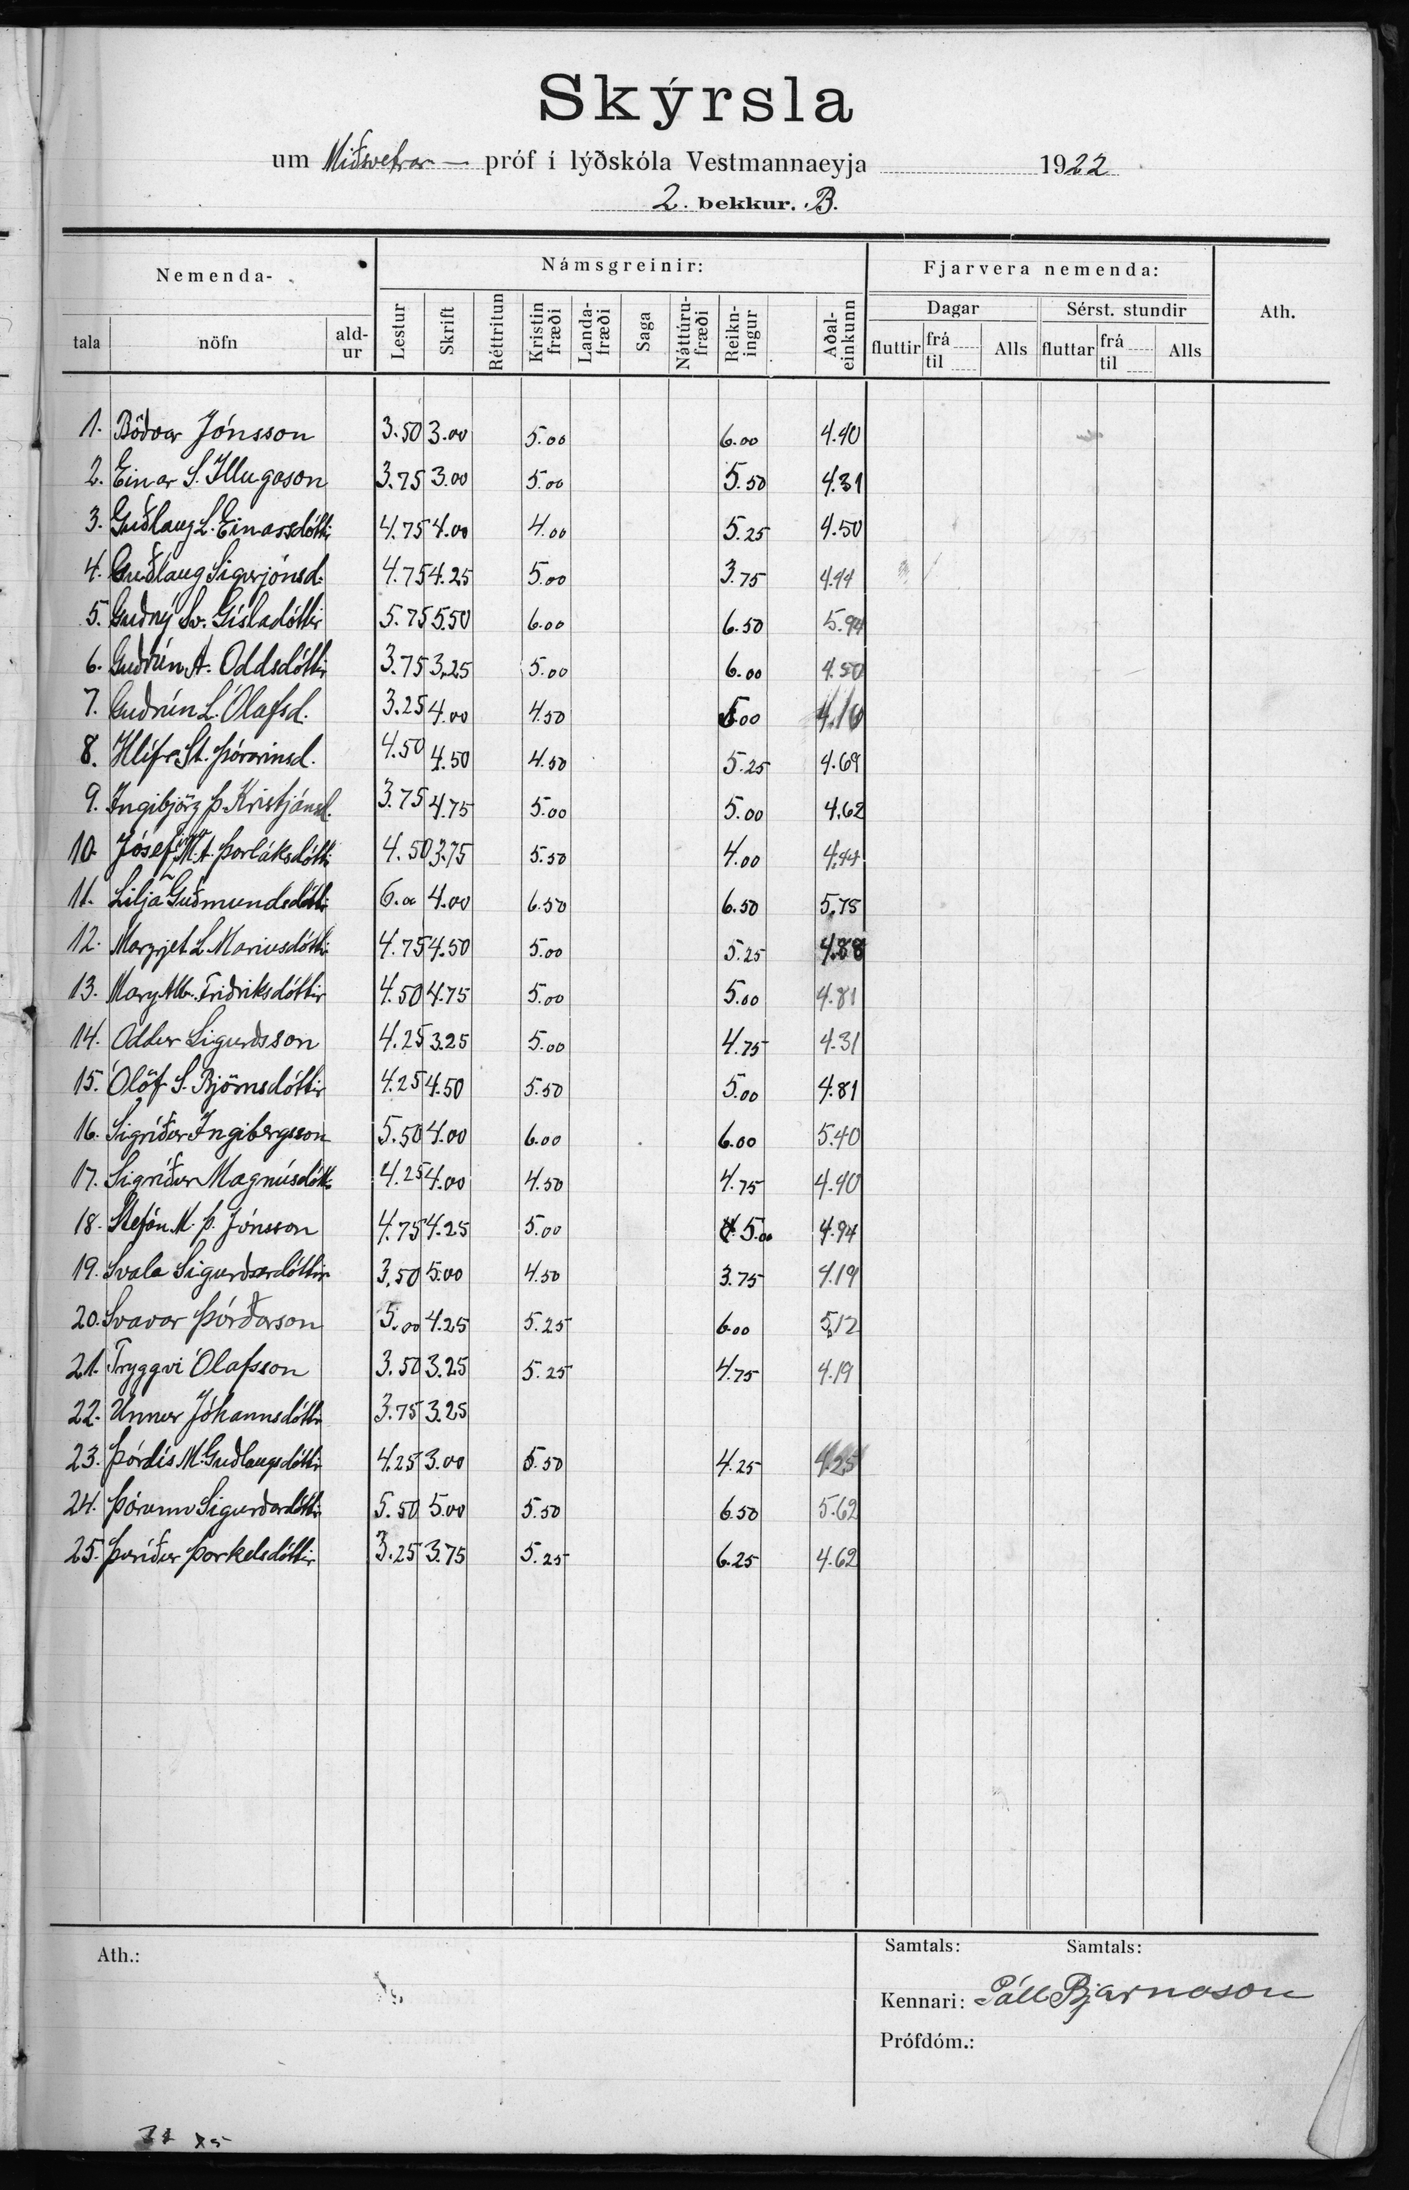 Skýrsla
um Miðsvetrar- próf í lýðskóla Vestmannaeyja 1922
2. bekkur. B.
Nemenda- Námsgreinir: Fjarvera nemenda: Ath.
tala nöfn ald-ur Lestur Skrift Réttritun Kristin fræði Landa-fræði Saga Náttúru-fræði Reikn-ingur Aðal-einkunn Dagar Sérst. stundir
fluttir frá til Alls fluttar frá til Alls
1. Böðvar Jónsson 3.50 3.00 5.00 6.00 4.40
2. Einar S. Illugason 3.75 3.00 5.00 5.50 4.31
3. Guðlaug L. Einarsdóttir 4.75 4.00 4.00 5.25 4.50
4. Guðlaug Sigurjónsd. 4.75 4.25 5.00 3.75 4.44
5. Guðný Sv. Gísladóttir 5.75 5.50 6.00 6.50 5.94
6. Guðrún A. Oddsdóttir 3.75 3.25 5.00 6.00 4.50
7. Guðrún L. Ólafsd. 3.25 4.00 4.50 5.00
8. Hlíf St. Þórarinsd. 4.50 4.50 4.50 5.25 4.69
9. Ingibjörg Þ. Kristjánsd. 3.75 4.75 5.00 5.00 4.62
10. Jósefína M.A. Þorláksdóttir 4.50 3.75 5.50 4.00 4.44
11. Lilja Guðmundsdóttir 6.00 4.00 6.50 6.50 5.75
12. Margrjet L. Maríusdóttir 4.75 4.50 5.00 5.25 4.88
13. Mary Alb. Friðriksdóttir 4.50 4.75 5.00 5.00 4.81
14. Oddur Sigurðsson 4.25 3.25 5.00 4.75 4.31
15. Ólöf S. Björnsdóttir 4.25 4.50 5.50 5.00 4.81
16. Sigríður Ingibergsson 5.50 4.00 6.00 6.00 5.40
17. Sigríður Magnúsdótt. 4.25 4.00 4.50 4.75 4.40
18. Stefán M. Þ. Jónsson 4.75 4.25 5.00 5.00 4.94
19. Svala Sigurðardóttir 3.50 5.00 4.50 3.75 4.19
20. Svavar Þórðarson 5.00 4.25 5.25 6.00 5.12
21. Tryggvi Ólafsson 3.50 3.25 5.25 4.75 4.19
22. Unnur Jóhannsdóttir 3.75 3.25
23. Þórdís M. Guðlaugsdóttir 4.25 3.00 5.50 4.25 4.25
24. Þórunn Sigurðardóttir 5.50 5.00 5.50 6.50 5.62
25. Þuríður Þorkelsdóttir 3.25 3.75 5.25 6.25 4.62
Ath.: Samtals: Samtals:
Kennari: Páll Bjarnason
Prófdóm.: